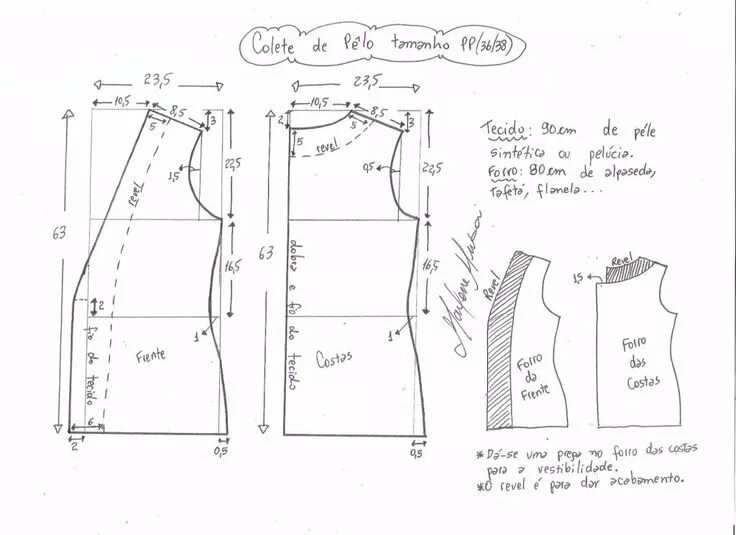 Colete de Pêlo tamanho PP(36/38)
23,5
10,5
8,5
3
5
revel
1,5
22,5
63
16,5
2
1
fio do tecido
Frente
6
2
0,5
23,5
10,5
8,5
2
3
5
5
revel
0,5
22,5
63
dobra e fio do tecido
16,5
1
Costas
0,5
Tecido: 90cm de péle
sintética ou pelúcia.
Forro: 80cm de alpaseda,
tafetá, flanela...
Marlene Mukai
Revel
Forro
da
Frente
Revel
1,5
Forro
das
Costas
*Dá-se uma prega no forro das costas
para a vestibilidade.
*O revel é para dar acabamento.